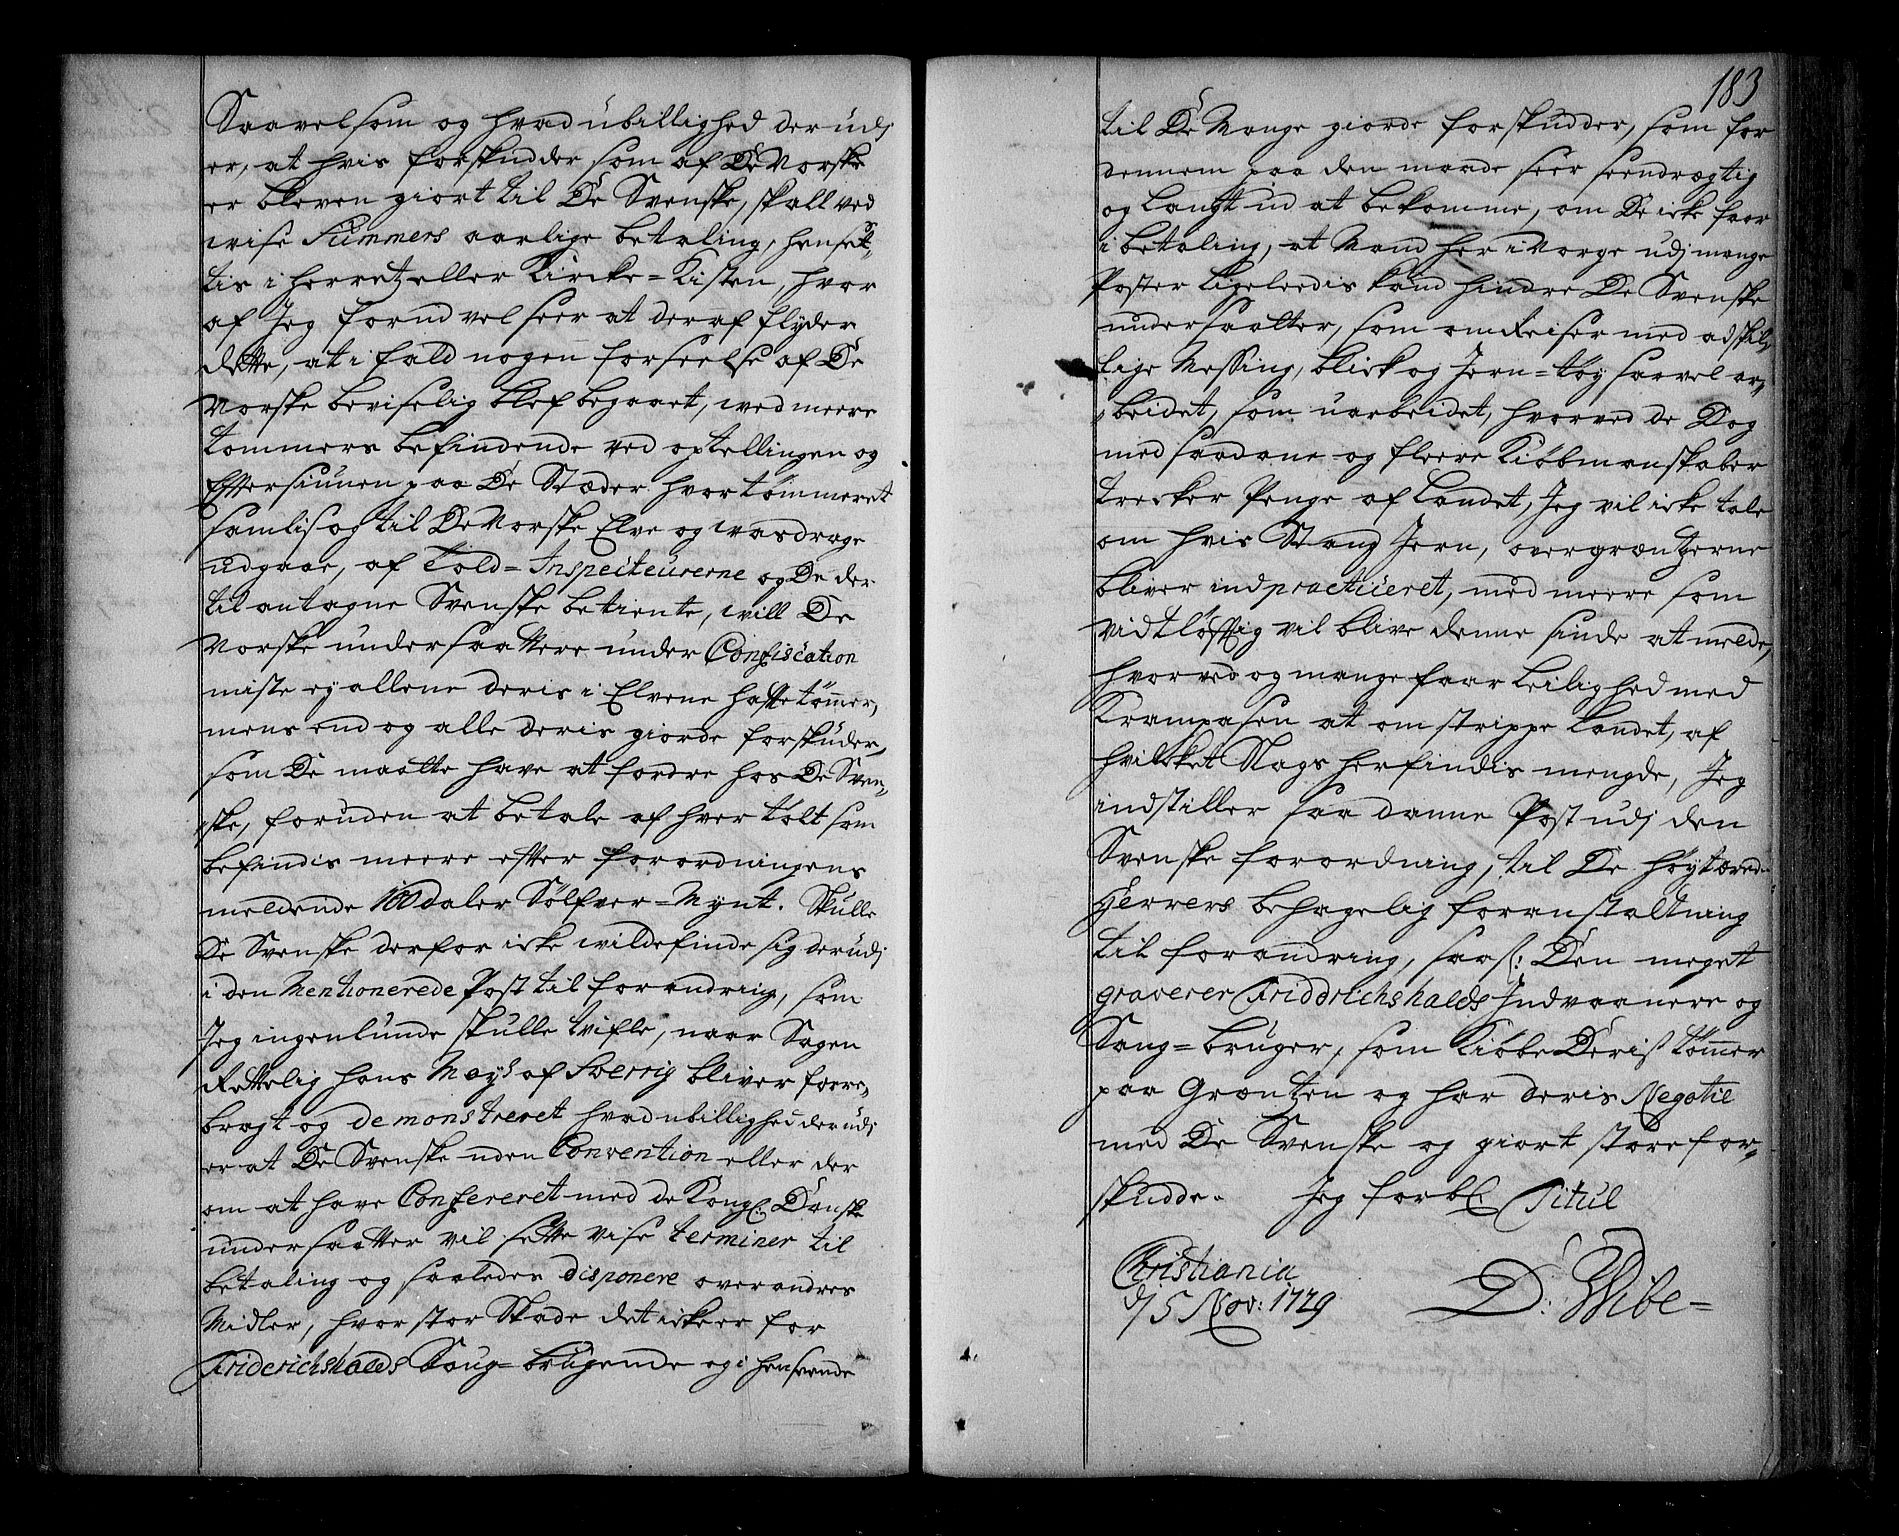 Saavelsom og hvad ubillighed der udj
er, at hvis forskudder som af De Norske
er bleven giort til De Svenske, skall ved
wise Summers aarlige betaling, hensæt-
tis i herretz eller Kircke-Kisten, hvor
af Jeg forud vel seer at deraf flyder
dette, at i fald nogen forseelse af De
Norske beviselig blef begaaet, wed meere
tømmers befindende ved optellingen og
Eftersiunen paa De Stæder hvor tømmeret
samlis og til De Norske Elve og wasdrage
udgaar, af Told-Inspecteurerne og De der
til antagne Svenske betiente, will De
Norske undersaattere under Confiscation
miste ey allene deris i Elvene hafte tømmer,
mens end og alle deris giorde forskuder,
som De maatte have at fordre hos De Sven-
ske, foruden at betale af hver tolt som
befindis meere efter forordningens
meldende 100 daler Sølfver-Mynt. Skulle
De Svenske derfor icke wilde finde sig der udj
i den Mentionerede Post til forandring, som
Jeg ingenlunde skulle tvifle, naar Sagen
Rettelig hans Mayst af Sverrig bliver fore-
bragt og demonstreret hvad ubillighed der udj
er at De Svenske uden Convention eller der
om at have Confereret med de Kongl: Danske
undersaatter vil sette vise terminer til
betaling og saaledes disponere over andres
Midler, hvor stor Skade det icke er for
Friderichshalds Saug-brugende og i henseende
183
til De Mange giorde forskudder, som for
dennem paa den maade seer seendrægtig
og langt ud at bekomme, om De icke faar
i betaling, at Mand her i Norge udj mange
Poster ligeledis kand hindre De Svenske
undersaatter, som omReiser med adskil-
lige Messing, blick og Jern-tøy saavel ar-
beidet, som uarbeidet, hvorved de Dog
med saadane og fleere Kiøbmanskaber
trecker Penge af Landet, Jeg vil icke tale
om hvis Stang Jern, over grændzerne
bliver indpracticeret, med meere som
vidtløftig vil blive denne sinde at melde,
hvorved og mange faar Leilighed med
Krampasen at omstrippe Landet, af
hvilcket Slags her findis mengde, Jeg
indstiller saadanne Post udj den
Svenske forordning, til De høytærede
Herrers behagelig foranstaltning
til forandring, saasl: Den meget
graverer Friddrichshalds Indvaanere og
Saug-bruger, som Kiøbe Deris tømmer
paa Grændtzen og har deris Negotie
med De Svenske og giort store for-
skudde. Jeg forbl: Titul
Christiania
d/ 5 Nov: 1729
D: Wibe-